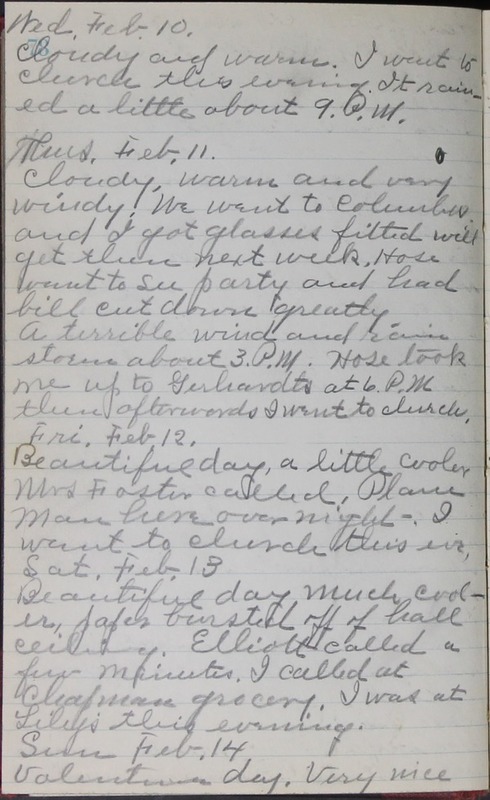 Wed. Feb. 10.
Cloudy and warm. I went to
church this evening. It rain-
ed a little about 9. P.M.
Thurs. Feb. 11.
Cloudy, warm and very
windy. We went to Columbus
and I got glasses fitted will
get them next week. Hose
went to see party and had
bill cut down greatly
A terrible wind and rain
storm about 3. P.M. Hose took
me up to Gerhardts at 6. P.M
then afterwords I went to church.
Fri. Feb. 12.
Beautiful day, a little cooler
Mrs Foster called, Plane
Man here over night-. I
went to church this eve,
Sat. Feb. 13
Beautiful day much cool-
er, paper bursted off of hall
ceiling. Elliott called a
few minutes. I called at
Chapman grocery. I was at
Lily's this evening.
Sun Feb. 14
Valentine day. Very nice